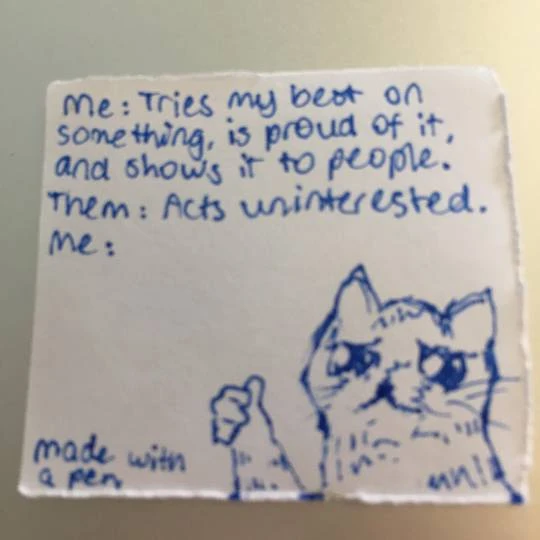 me: Tries my best on
something, is proud of it,
and shows it to people.
Them: Acts uninterested.
Me:
made with
a pen